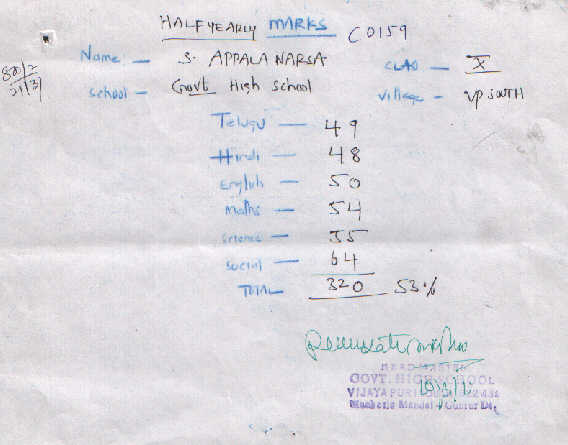 HALF YEARLY MARKS C0159
Name - S. APPALA NARSA
CLASS - X
School - Govt High School
Village - VP SOUTH
Telugu - 49
Hindi - 48
English - 50
Maths - 54
Science - 55
Social - 64
TOTAL 320 53%
HEAD MASTER
GOVT. HIGH SCHOOL
VIJAYAPURI
Mandal, Guntur Dt.